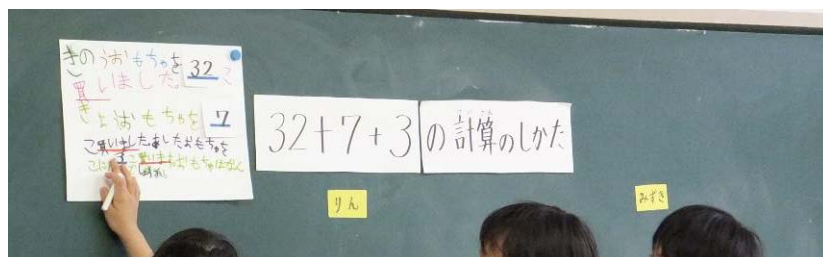 きのうおもちゃを 32 こ
買いました。
きょうおもちゃを 7
こ買いました。あしたおもちゃを
32+7+3の計算のしかた
けいさん
りん
みずき